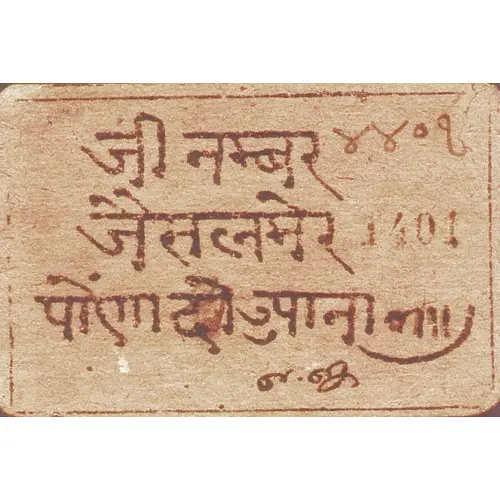 जी नम्बर ४४०१
जैसलमेर 1401
पोंणा दो उपाना